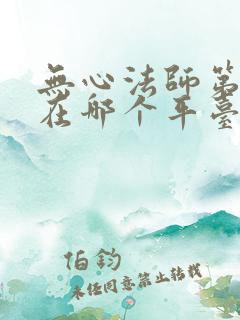 無心法師第
在哪个平臺
伯鈞
未经同意禁止转载